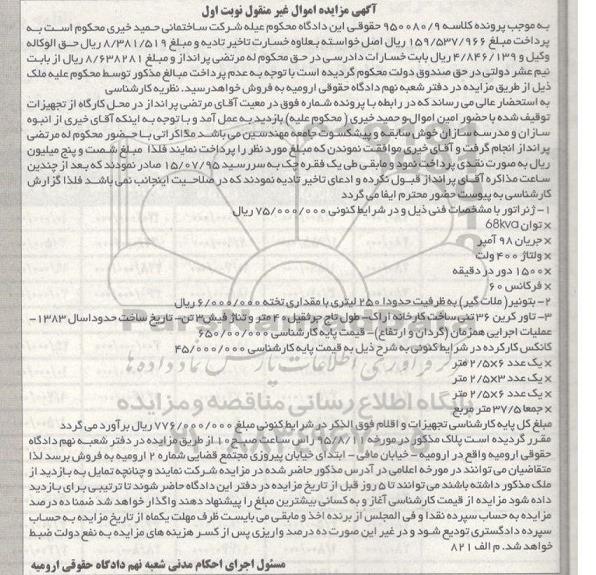 آگهی مزایده اموال غیر منقول نوبت اول
به موجب پرونده کلاسه ۹۵۰۰۸۰/۹ حقوقی این دادگاه محکوم عیله شرکت ساختمانی حمید خیری محکوم است به
پرداخت مبلغ ۱۵۹/۵۳۷/۹۶۶ ریال اصل خواسته بعلاوه خسارت تاخیر تادیه و مبلغ ۸/۳۸۱/۵۱۹ ریال حق الوکاله
وکیل و ۴/۸۴۶/۱۳۹ ریال بابت خسارات دادرسی در حق محکوم له مرتضی پرانداز و مبلغ ۸/۶۳۸۲۸۱ ریال از بابت
نیم عشر دولتی در حق صندوق دولت محکوم گردیده است با توجه به عدم پرداخت مبالغ مذکور توسط محکوم علیه ملک
ذیل از طریق مزایده در دفتر شعبه نهم دادگاه حقوقی ارومیه به فروش خواهد رسید. نظریه کارشناسی
به استحضار عالی می رساند که در رابطه با پرونده شماره فوق در معیت آقای مرتضی پرانداز در محل کارگاه از تجهیزات
توقیف شده با حضور امین اموال و حمید خیری (محکوم علیه) بازدید به عمل آمد و با توجه به اینکه آقای خیری از انبوه
سازان و مدرسه سازان خوش سابقه و پیشکسوت جامعه مهندسین می باشد مذاکراتی با حضور محکوم له مرتضی
پرانداز انجام گرفت و آقای خیری موافقت نمودن که مبلغ مورد نظر را پرداخت نمایند فلذا مبلغ شصت و پنج میلیون
ریال به صورت نقدی پرداخت نمود و مابقی طی یک فقره چک به سررسید ۱۵/۰۷/۹۵ صادر نمودند که بعد از چندین
ساعت مذاکره آقای پرانداز قبول نکرده و ادعای تاخیر تادیه نمودند که در صلاحیت اینجانب نمی باشد فلذا گزارش
کارشناسی به پیوست حضور محترم ایفا می گردد
۱- ژنراتور با مشخصات فنی ذیل و در شرایط کنونی ۷۵/۰۰۰/۰۰۰ ریال
× توان 68kva
× جریان ۹۸ آمپر
× ولتاژ ۴۰۰ ولت
× ۱۵۰۰ دور در دقیقه
× فرکانس ۶۰
۲- بتونیر (ملات گیر) به ظرفیت حدودا ۲۵۰ لیتری با مقداری تخته ۶/۰۰۰/۰۰۰ ریال
۳- تاور کرین ۳۶ تنی ساخت کارخانه اراک- طول تاج جرثقیل ۴۰ متر و تناژ فیش ۳ تن- تاریخ ساخت حدودا سال ۱۳۸۳-
عملیات اجرایی همزمان (گردان و ارتفاع)- قیمت پایه کارشناسی ۶۵۰/۰۰/۰۰۰
کانکس کارکرده در شرایط کنونی به شرح ذیل به قیمت پایه کارشناسی ۴۵/۰۰۰/۰۰۰
× یک عدد ۲/۵×۶ متر
× یک عدد ۲/۵×۳ متر
× یک عدد ۲/۵×۶ متر
× جمعا ۳۷/۵ متر مربع
مبلغ کل پایه کارشناسی تجهیزات و اقلام فوق الذکر در شرایط کنونی مبلغ ۷۷۶/۰۰۰/۰۰۰ ریال برآورد می گردد
مقرر گردیده است پلاک مذکور در مورخه ۹۵/۸/۱۱ راس ساعت صبح ۱۰ از طریق مزایده در دفتر شعبه نهم دادگاه
حقوقی ارومیه واقع در ارومیه - خیابان مافی - ابتدای خیابان پیروزی مجتمع قضایی شماره ۲ ارومیه به فروش برسد لذا
متقاضیان می توانند در مورخه اعلامی در آدرس مذکور حاضر شده در مزایده شرکت نمایند و چنانچه تمایل به بازدید از
ملک مذکور داشته باشند می توانند تا ۵ روز قبل از تاریخ مزایده در دفتر این دادگاه حاضر شوند تا ترتیبی برای بازدید
داده شود مزایده از قیمت کارشناسی آغاز و به کسانی بیشترین مبلغ را پیشنهاد دهند واگذار خواهد شد ضمنا ده درصد
مزایده به حساب سپرده نقدا و فی المجلس از برنده اخذ و مابقی می بایست ظرف مهلت یکماه از تاریخ مزایده به حساب
سپرده دادگستری تودیع شود و در غیر این صورت ده درصد واریزی پس از کسر هزینه های مزایده به نفع دولت ضبط
خواهد شد. م الف ۸۲۱
مسئول اجرای احکام مدنی شعبه نهم دادگاه حقوقی ارومیه
پایگاه اطلاع رسانی مناقصه و مزایده